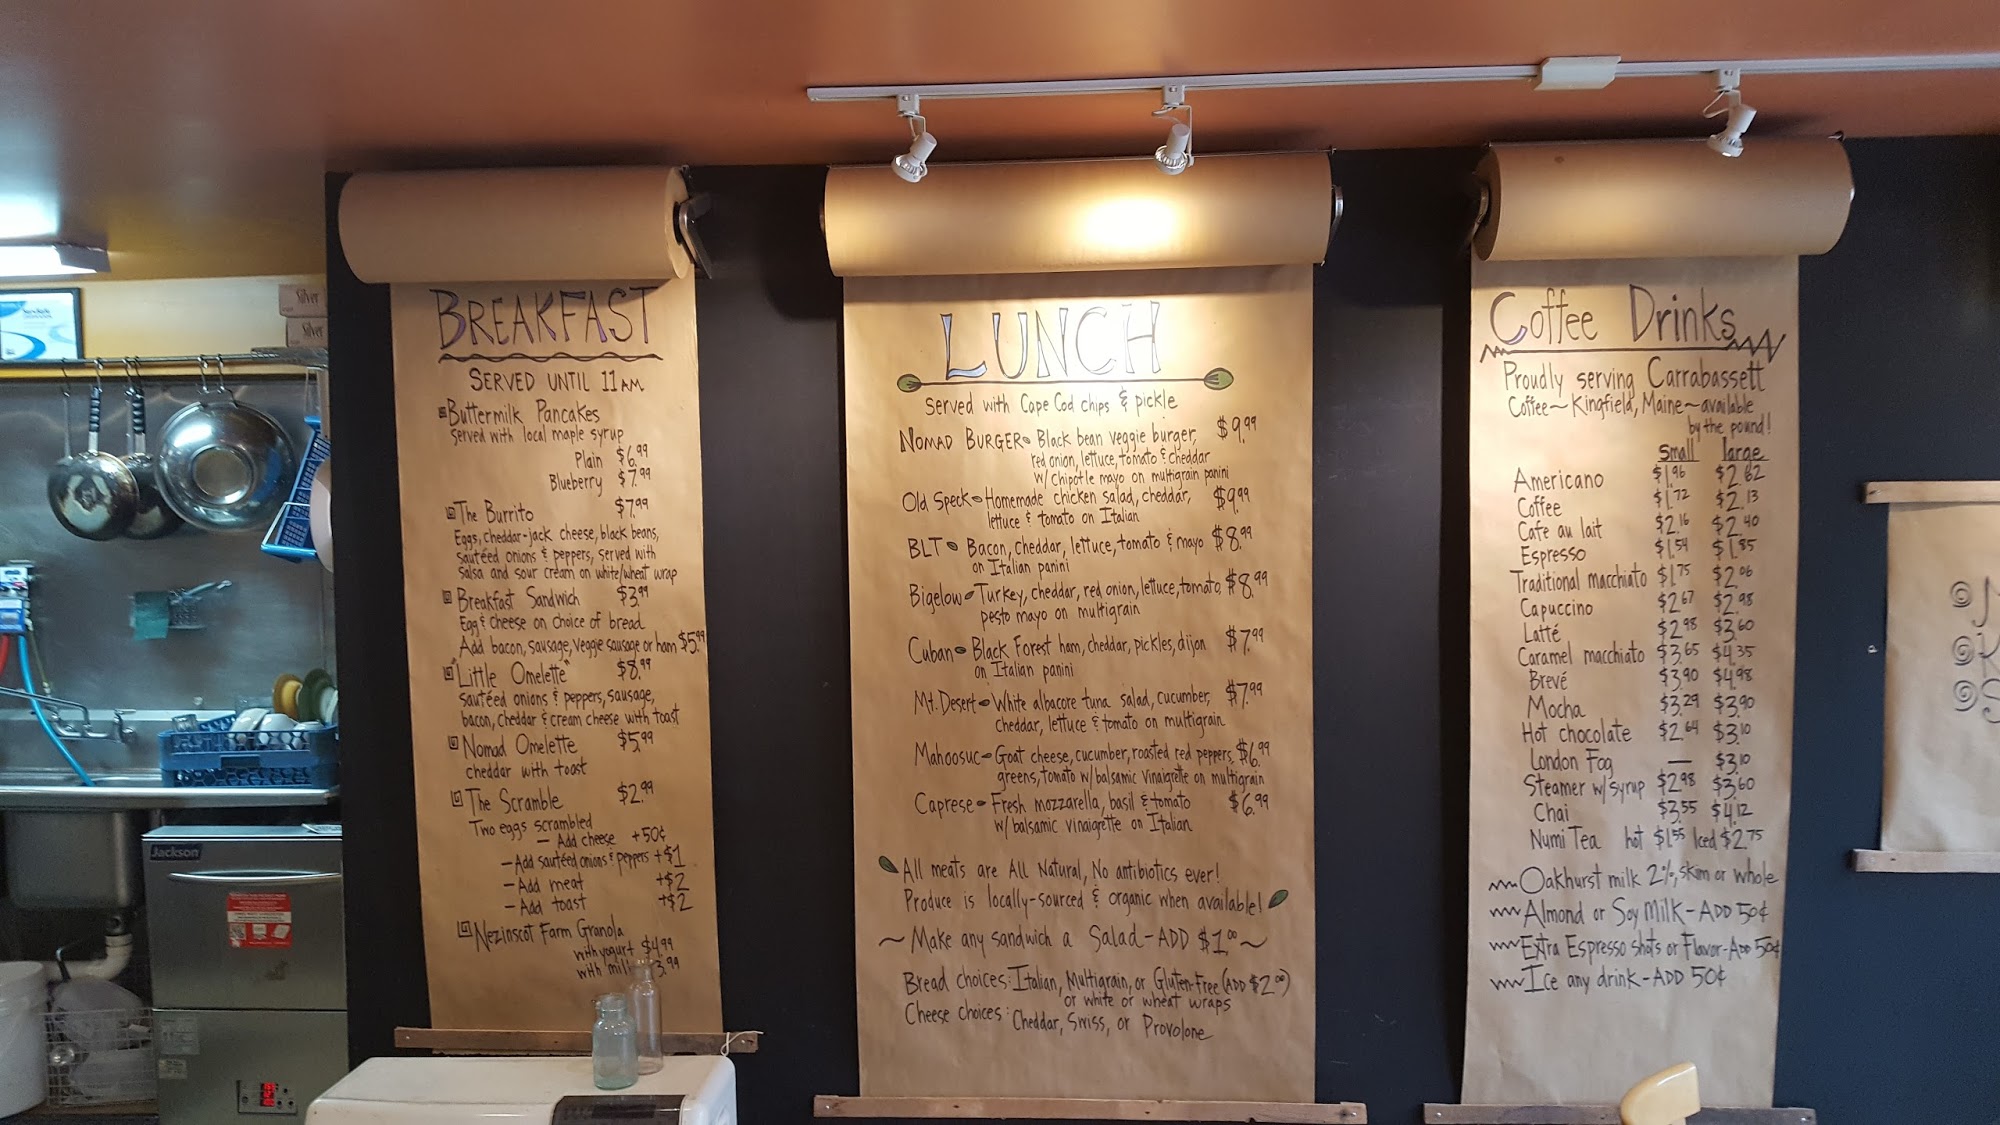 BREAKFAST
SERVED UNTIL 11AM
Buttermilk Pancakes
served with local maple syrup
Plain $6.99
Blueberry $7.99
The Burrito $7.99
Eggs, cheddar-jack cheese, black beans,
sautéed onions & peppers, served with
salsa and sour cream on white/wheat wrap
Breakfast Sandwich $3.99
Egg & cheese on choice of bread
Add bacon, sausage, veggie sausage or ham $5.99
"Little Omelette" $8.99
sautéed onions & peppers, sausage,
bacon, cheddar & cream cheese with toast
Nomad Omelette $5.99
cheddar with toast
The Scramble $2.99
Two eggs scrambled
- Add cheese +50¢
- Add sautéed onions & peppers +$1
- Add meat +$2
- Add toast +$2
Nezinscot Farm Granola
with yogurt $4.99
with milk 3.99
LUNCH
served with Cape Cod chips & pickle
NOMAD BURGER Black bean veggie burger, $9.99
red onion, lettuce, tomato & cheddar
w/ chipotle mayo on multigrain panini
Old Speck Homemade chicken salad, cheddar, $9.99
lettuce & tomato on Italian
BLT Bacon, cheddar, lettuce, tomato & mayo $8.99
on Italian panini
Bigelow Turkey, cheddar, red onion, lettuce, tomato, $8.99
pesto mayo on multigrain
Cuban Black Forest ham, cheddar, pickles, dijon $7.99
on Italian panini
Mt. Desert White albacore tuna salad, cucumber, $7.99
cheddar, lettuce & tomato on multigrain
Mahoosuc Goat cheese, cucumber, roasted red peppers, $6.99
greens, tomato w/ balsamic vinaigrette on multigrain
Caprese Fresh mozzarella, basil & tomato $6.99
w/ balsamic vinaigrette on Italian
All meats are All Natural, No antibiotics ever!
Produce is locally-sourced & organic when available!
~ Make any sandwich a Salad - ADD $1.00 ~
Bread choices: Italian, Multigrain, or Gluten-Free (ADD $2.00)
or white or wheat wraps
Cheese choices: Cheddar, Swiss, or Provolone
Coffee Drinks
Proudly serving Carrabassett
Coffee ~ Kingfield, Maine ~ available
by the pound!
small large
Americano $1.96 $2.62
Coffee $1.72 $2.13
Cafe au lait $2.16 $2.40
Espresso $1.54 $1.85
Traditional macchiato $1.75 $2.06
Capuccino $2.67 $2.98
Latté $2.98 $3.60
Caramel macchiato $3.65 $4.35
Brevé $3.90 $4.98
Mocha $3.29 $3.90
Hot chocolate $2.64 $3.10
London Fog — $3.10
Steamer w/ syrup $2.98 $3.60
Chai $3.55 $4.12
Numi Tea hot $1.55 Iced $2.75
Oakhurst milk 2%, skim or whole
Almond or Soy Milk - ADD 50¢
Extra Espresso shots or Flavor - Add 50¢
Ice any drink - ADD 50¢
Jackson
Silver
Silver